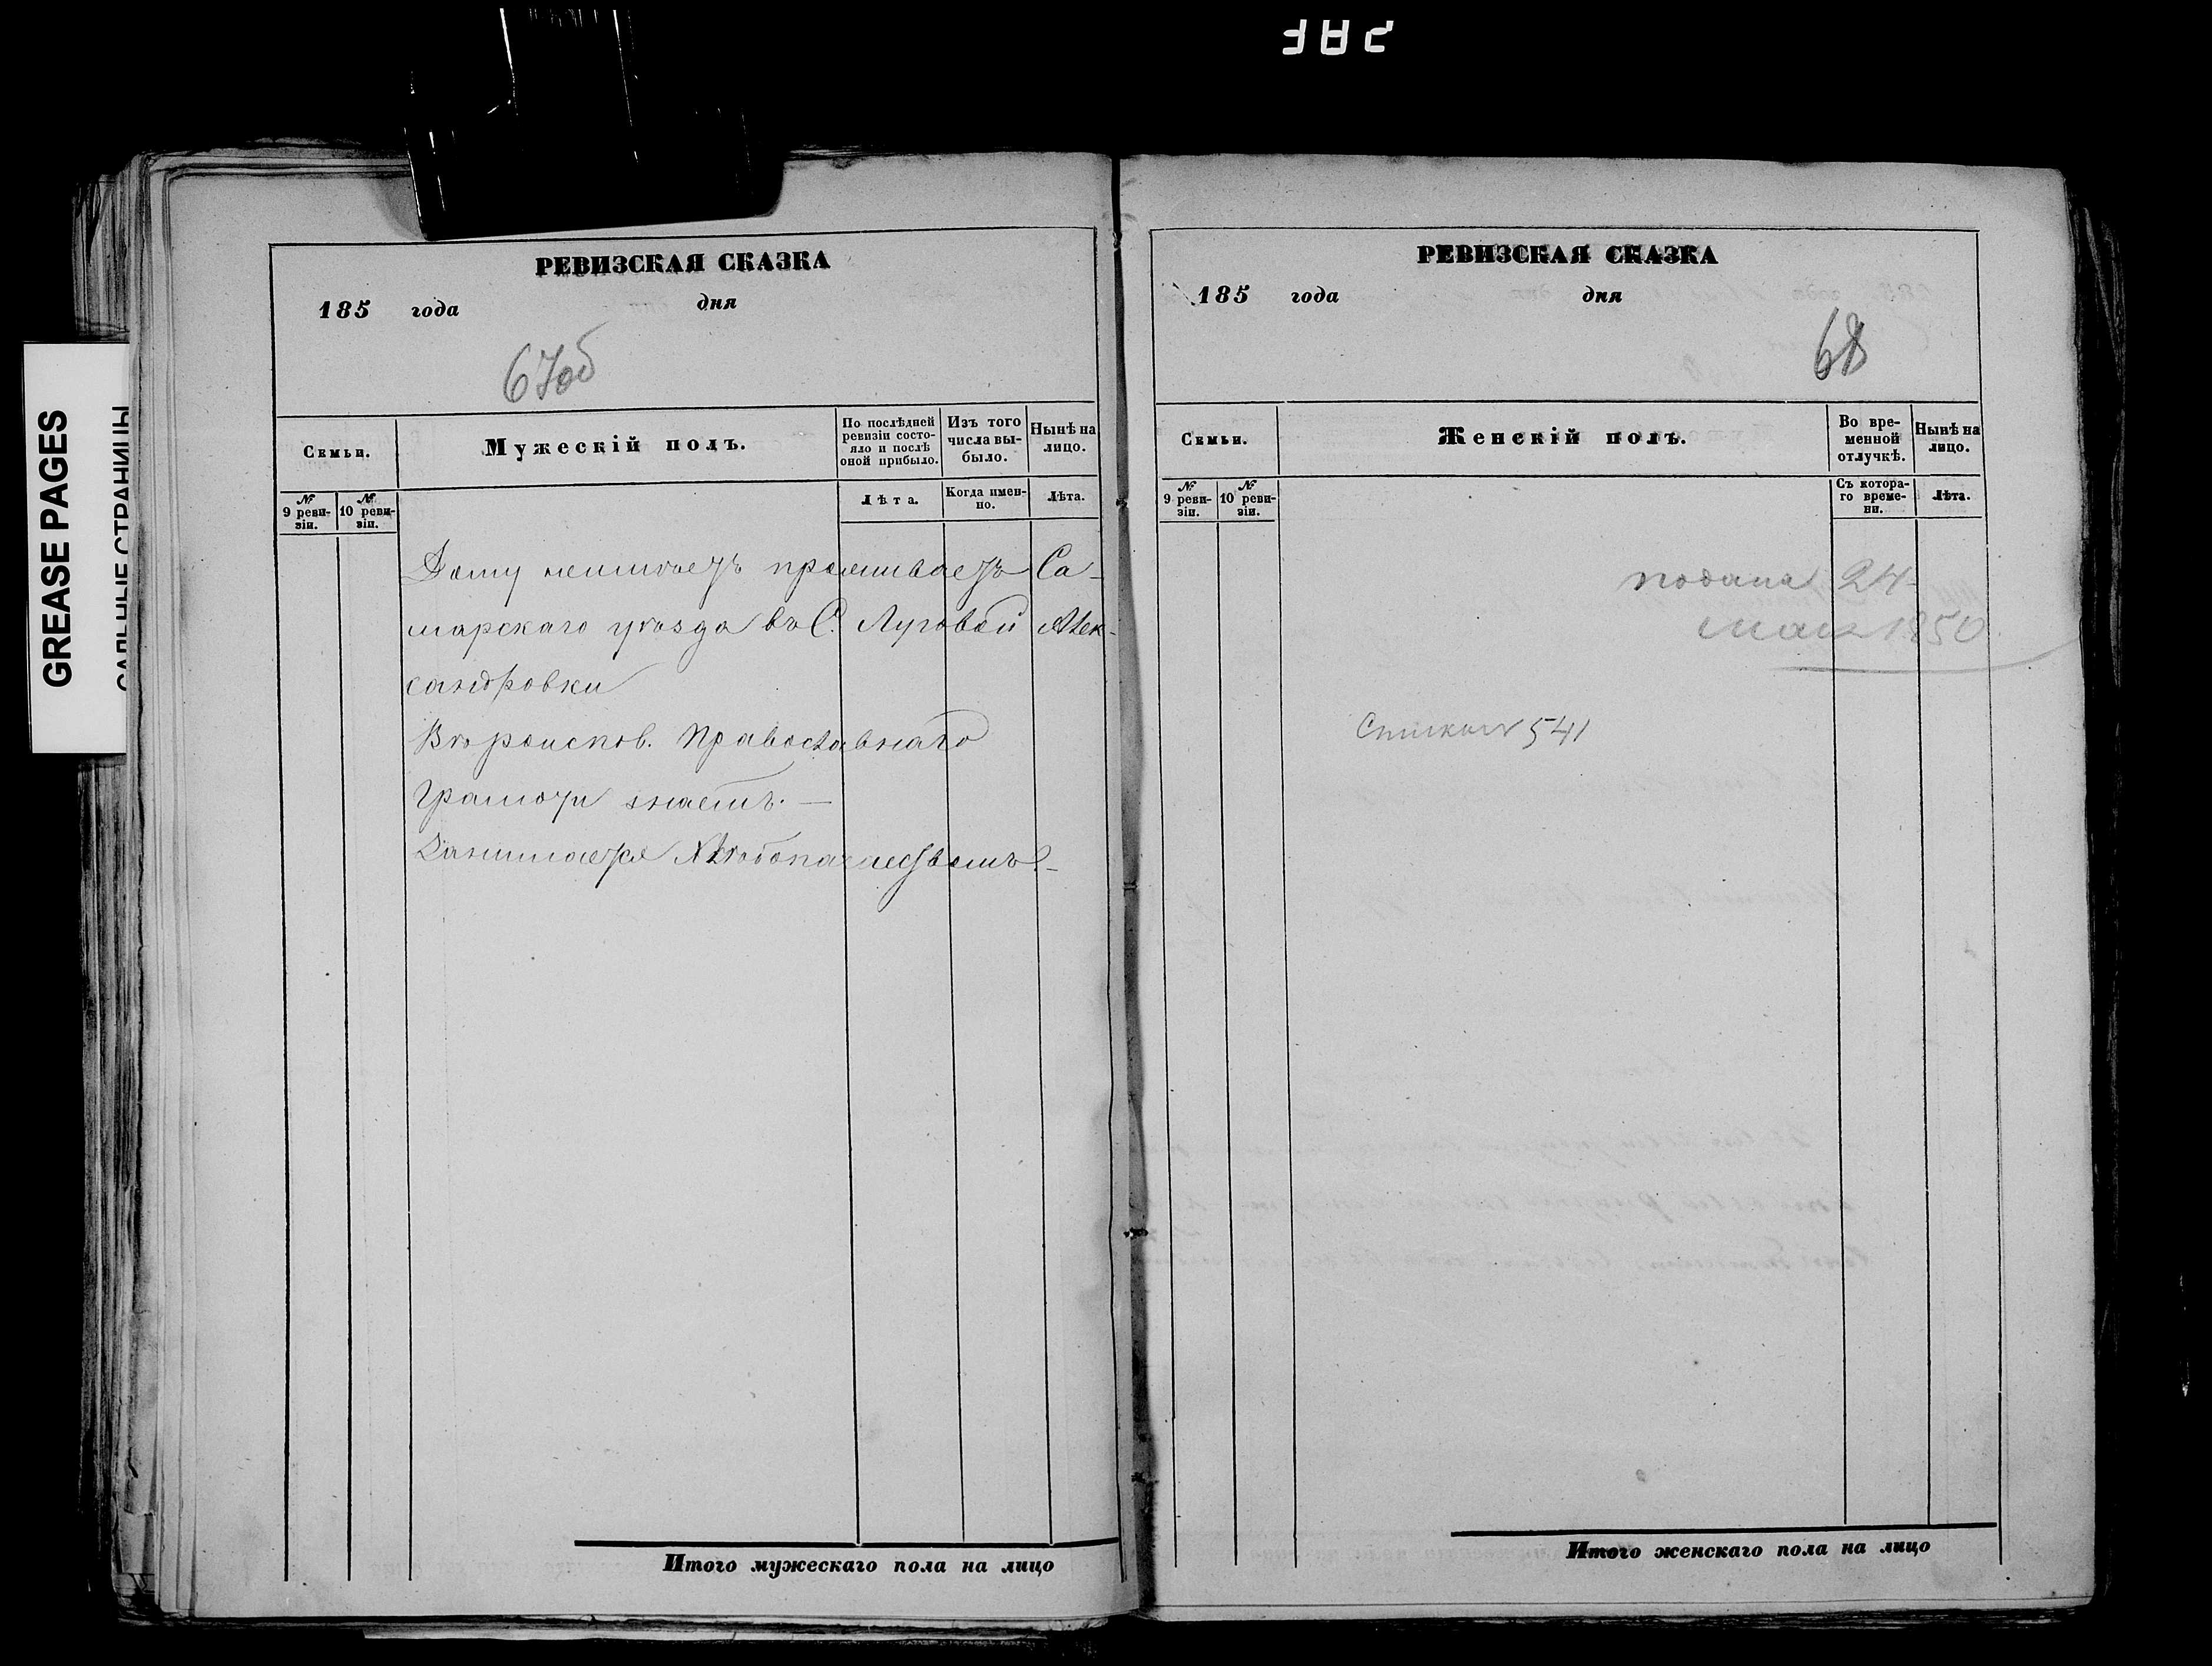 GREASE PAGES
САЛЬНЫЕ СТРАНИЦЫ
РЕВИЗСКАЯ СКАЗКА
185 года дня
67об
Семьи.
Мужескій полъ.
По послѣдней ревизіи состояло и послѣ оной прибыло.
Изъ того числа выбыло.
Нынѣ на лицо.
№ 9 ревизіи.
№ 10 ревизіи.
Лѣта.
Когда именно.
Лѣта.
Дому неимѣетъ проживаетъ Са-
марскаго уѣзда въ С. Луговой Алек-
сандровки
Вѣроиспов. Православнаго
Грамоти знаетъ. —
Занимается Хлѣбопашествомъ. —
Итого мужескаго пола на лицо
РЕВИЗСКАЯ СКАЗКА
185 года дня
68
Семьи.
Женскій полъ.
Во временной отлучкѣ.
Нынѣ на лицо.
№ 9 ревизіи.
№ 10 ревизіи.
Съ котораго времени.
Лѣта.
подана 24
мая 1850
541
Итого женскаго пола на лицо